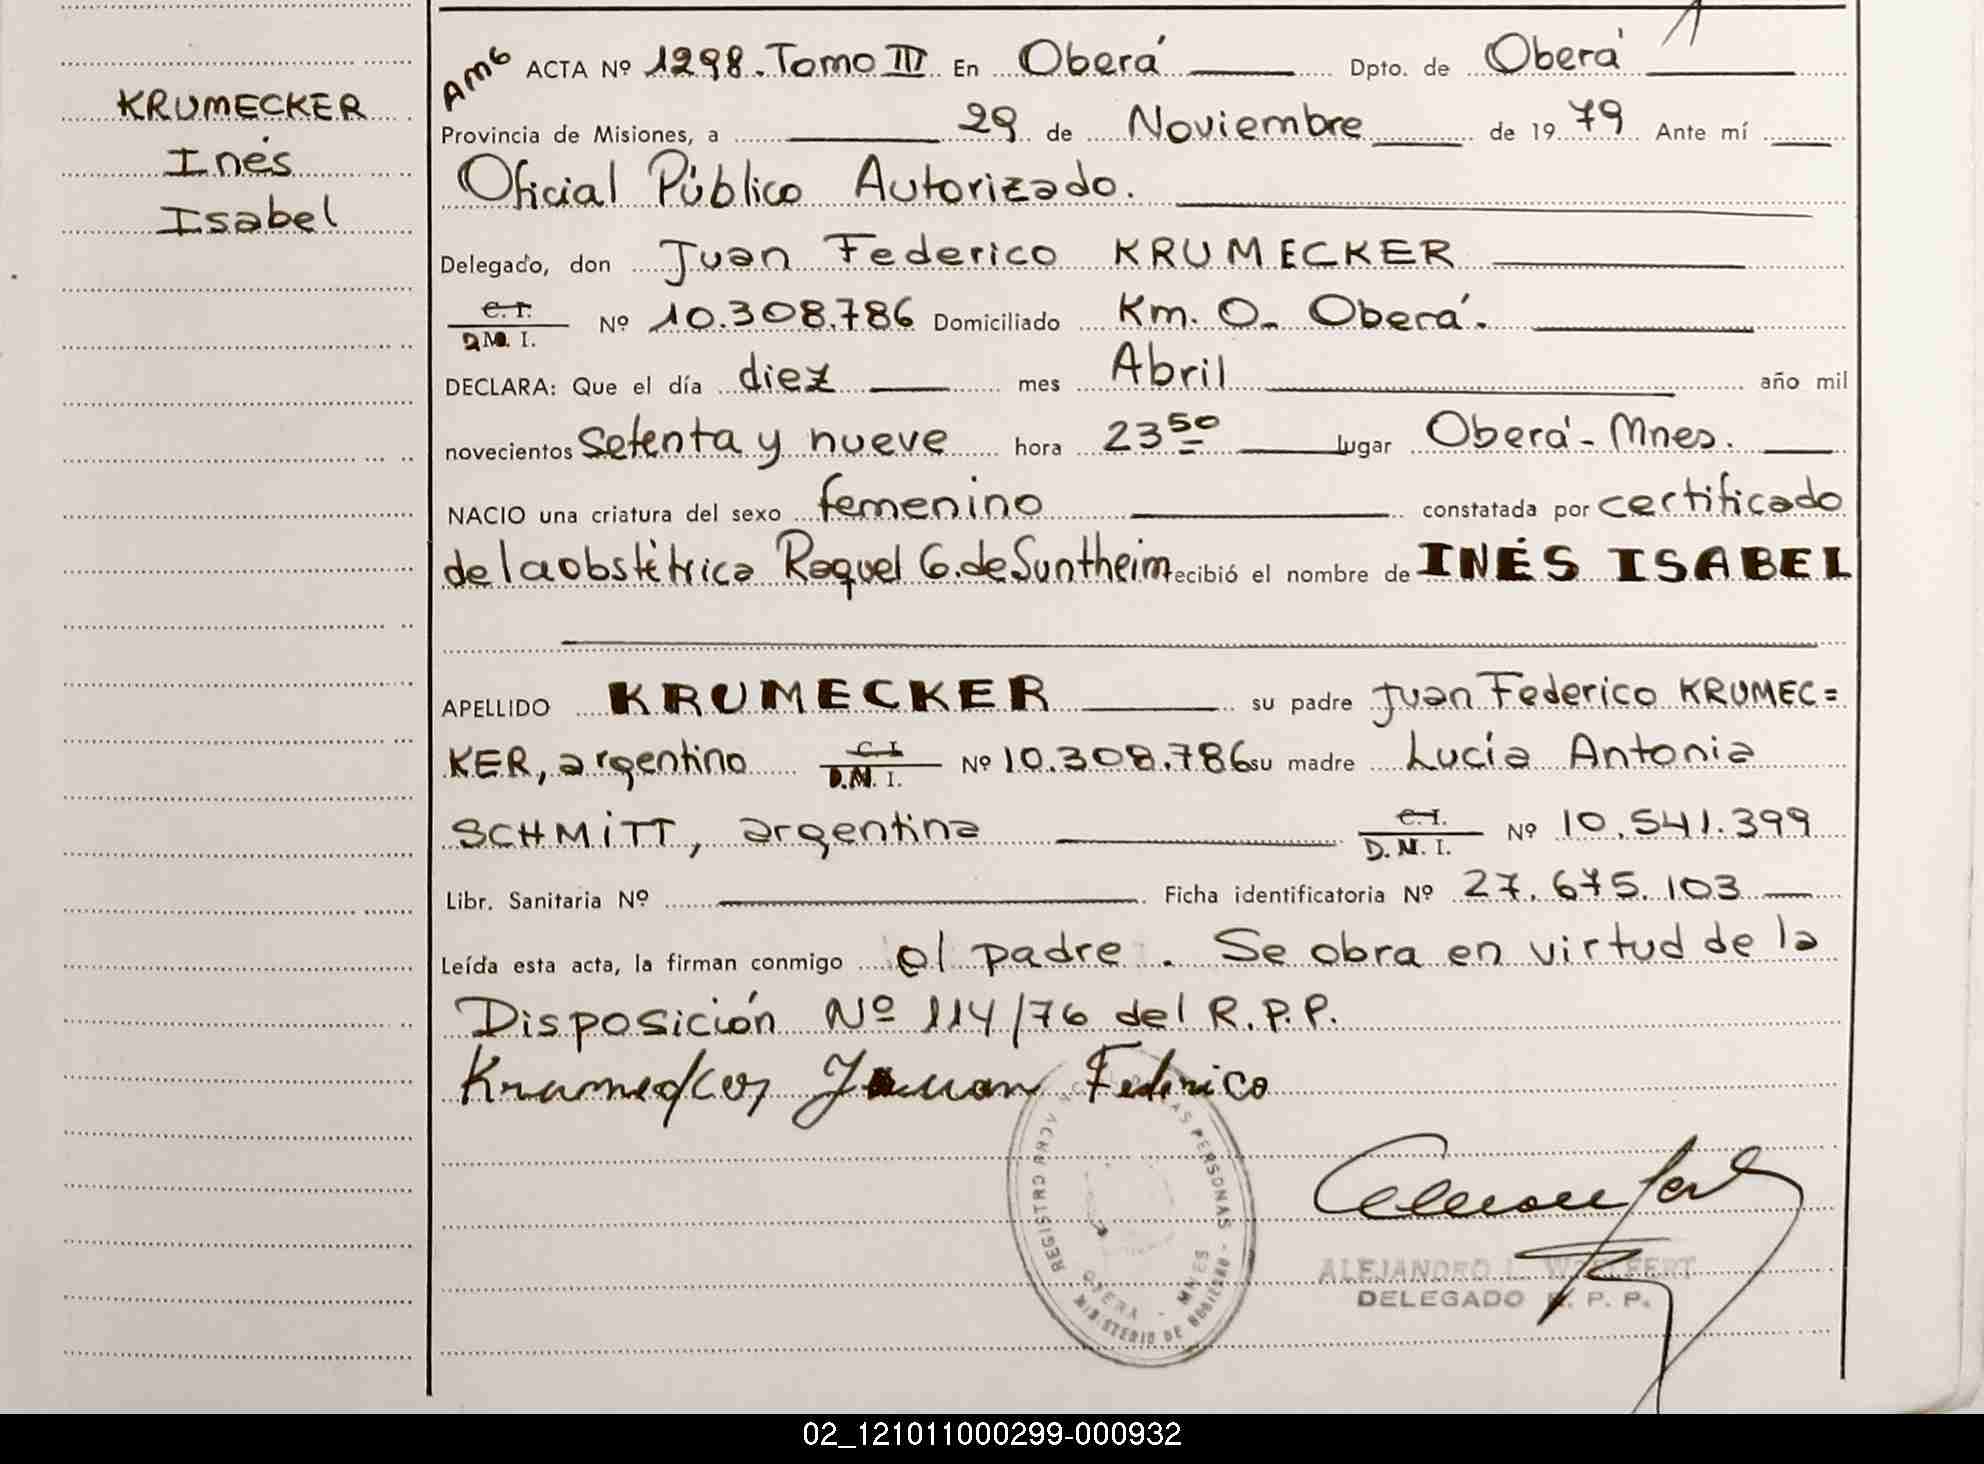 KRUMECKER
Inés
Isabel
AMG ACTA Nº 1298. Tomo III En Oberá Dpto. de Oberá
Provincia de Misiones, a 29 de Noviembre de 1979 Ante mí
Oficial Público Autorizado.
Delegado, don Juan Federico KRUMECKER
C. I. D.N. I. Nº 10.308.786 Domiciliado Km. 0. Oberá.
DECLARA: Que el día diez mes Abril año mil
novecientos setenta y nueve hora 23 50 lugar Oberá - Mnes.
NACIO una criatura del sexo femenino constatada por certificado
de la obstétrica Raquel G. de Suntheim recibió el nombre de INÉS ISABEL
APELLIDO KRUMECKER su padre Juan Federico KRUMEC=
KER, argentino C. I. D.N. I. Nº 10.308.786 su madre Lucía Antonia
SCHMITT, argentina C. I. D.N. I. Nº 10.541.399
Libr. Sanitaria Nº Ficha identificatoria Nº 27.675.103
Leída esta acta, la firman conmigo el padre. Se obra en virtud de la
Disposición Nº 114/76 del R.P.P.
Krumecker Juan Federico
REGISTRO PROVINCIAL DE LAS PERSONAS
OBERA - MNES
MINISTERIO DE GOBIERNO
ALEJANDRO L.
DELEGADO R. P. P.
02_121011000299-000932